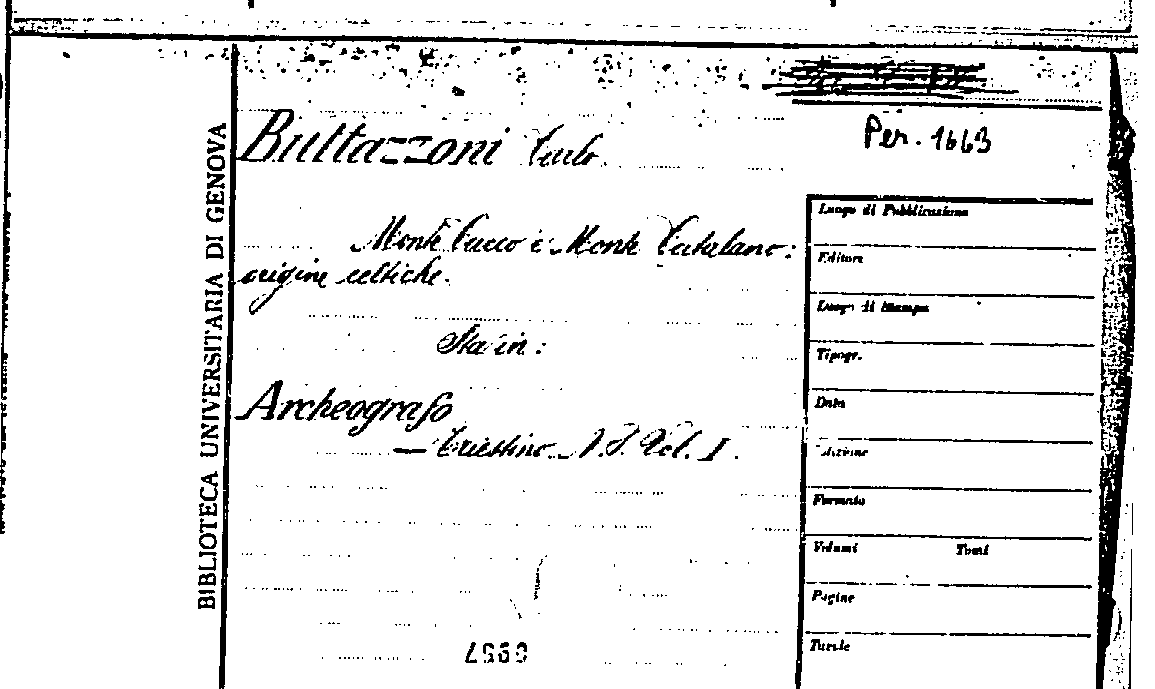 BIBLIOTECA UNIVERSITARIA DI GENOVA
Per. 1663
Buttazzoni Carlo.
Monte Cucco e Monte Catalano:
origine celtiche.
Sta in:
Archeografo
— Triestino. N.S. Vol. I.
Luogo di Pubblicazione
Editore
Luogo di Stampa
Tipogr.
Data
Edizione
Formato
Volumi Tomi
Pagine
Tavole